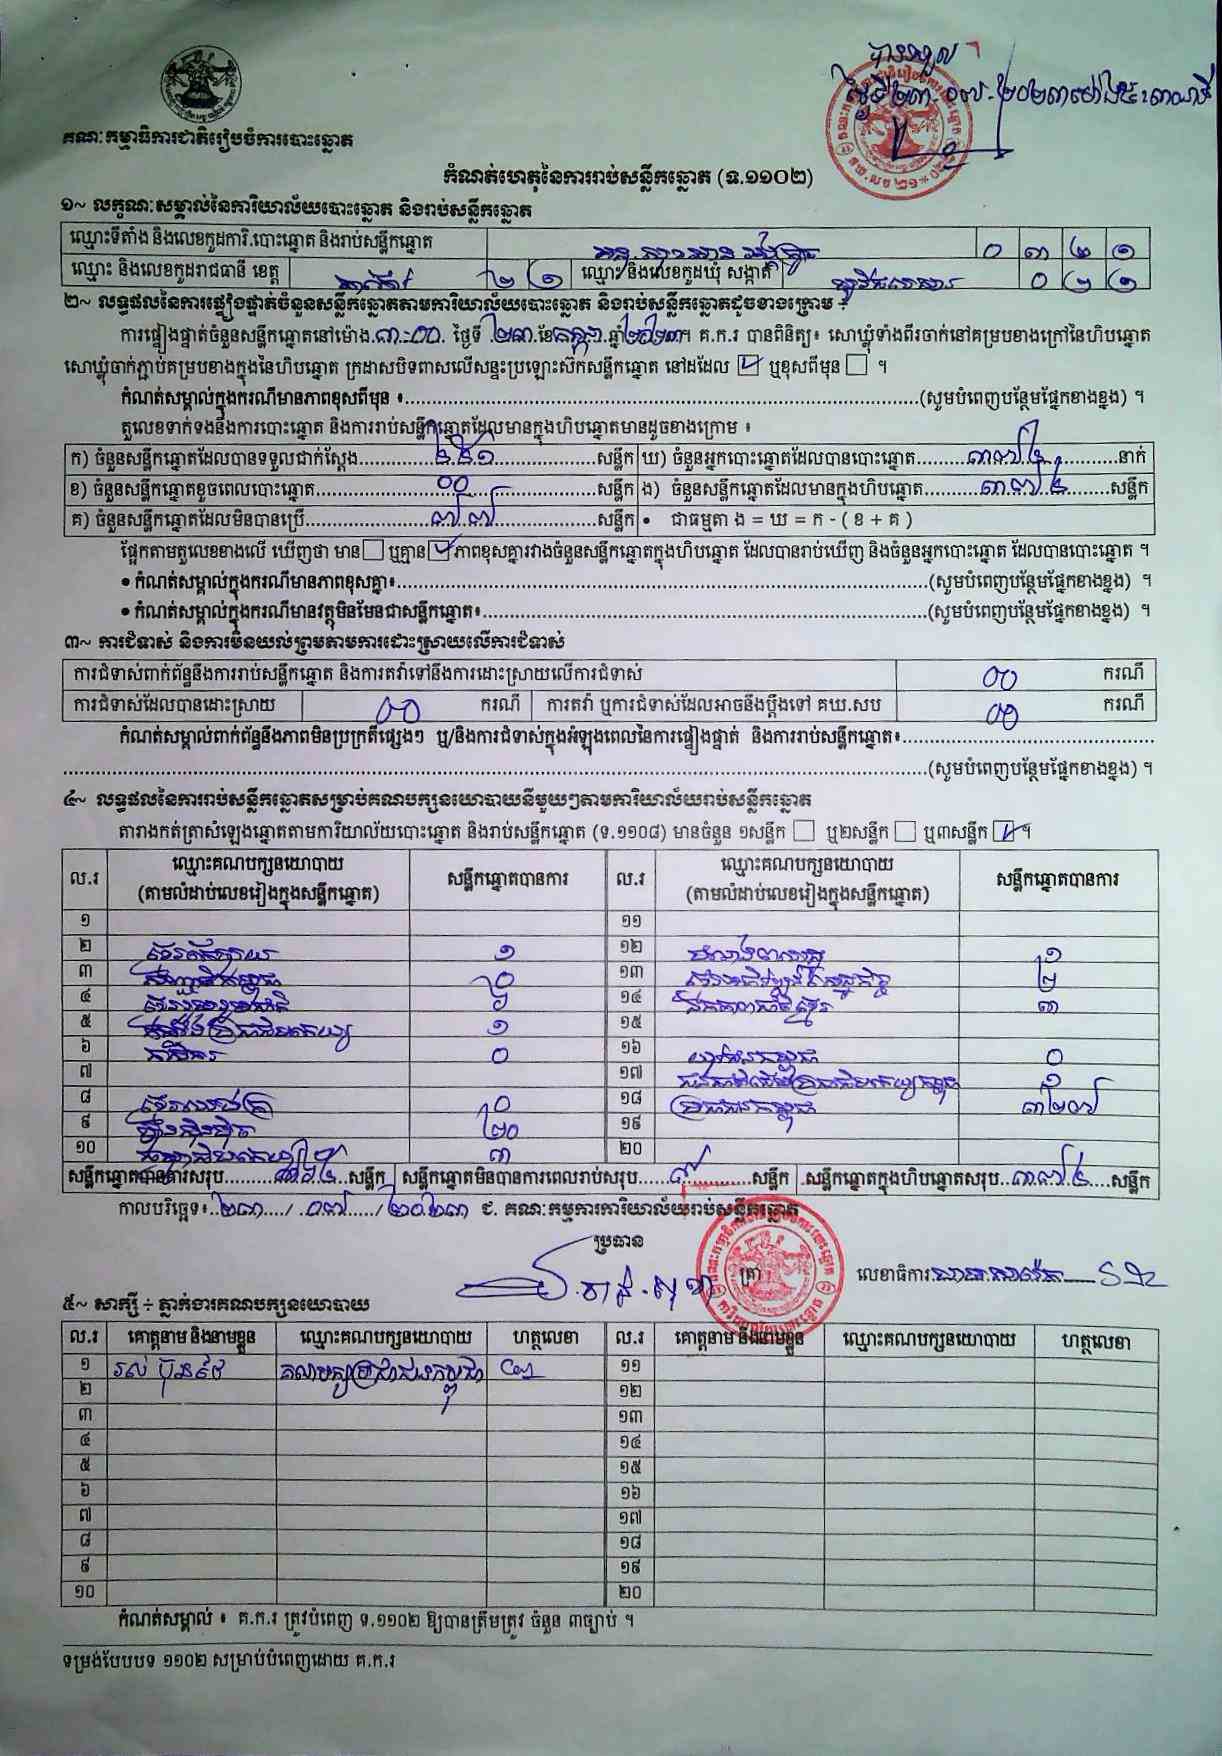 គណៈកម្មាធិការជាតិរៀបចំការបោះឆ្នោត
កំណត់ហេតុនៃការរាប់សន្លឹកឆ្នោត (ទ.១១០២)
១~ លក្ខណៈសម្គាល់នៃការិយាល័យបោះឆ្នោត និងរាប់សន្លឹកឆ្នោត
ឈ្មោះទីតាំង និងលេខកូដការិ.បោះឆ្នោត និងរាប់សន្លឹកឆ្នោត ០ ៣ ២ ១
ឈ្មោះ និងលេខកូដរាជធានី ខេត្ត តាកែវ ២ ១ ឈ្មោះ និងលេខកូដឃុំ សង្កាត់ ០ ២ ១
២~ លទ្ធផលនៃការផ្ទៀងផ្ទាត់ចំនួនសន្លឹកឆ្នោតតាមការិយាល័យបោះឆ្នោត និងរាប់សន្លឹកឆ្នោតដូចខាងក្រោម ÷
ការផ្ទៀងផ្ទាត់ចំនួនសន្លឹកឆ្នោតនៅម៉ោង.៣:០០. ថ្ងៃទី ២៣ ខែកក្កដា ឆ្នាំ២០២៣។ គ.ក.រ បានពិនិត្យ៖ សោឃ្លុំទាំងពីរចាក់នៅគម្របខាងក្រៅនៃហិបឆ្នោត
សោឃ្លុំចាក់ភ្ជាប់គម្របខាងក្នុងនៃហិបឆ្នោត ក្រដាសបិទពាសលើសន្ទះប្រឡោះស៊កសន្លឹកឆ្នោត នៅដដែល ☑ ឬខុសពីមុន ☐ ។
កំណត់សម្គាល់ក្នុងករណីមានភាពខុសពីមុន ៖ (សូមបំពេញបន្ថែមផ្នែកខាងខ្នង) ។
តួលេខទាក់ទងនឹងការបោះឆ្នោត និងការរាប់សន្លឹកឆ្នោតដែលមានក្នុងហិបឆ្នោតមានដូចខាងក្រោម ៖
ក) ចំនួនសន្លឹកឆ្នោតដែលបានទទួលជាក់ស្តែង សន្លឹក ឃ) ចំនួនអ្នកបោះឆ្នោតដែលបានបោះឆ្នោត ៣៧៤ នាក់
ខ) ចំនួនសន្លឹកឆ្នោតខូចពេលបោះឆ្នោត ០០ សន្លឹក ង) ចំនួនសន្លឹកឆ្នោតដែលមានក្នុងហិបឆ្នោត ៣៧៤ សន្លឹក
គ) ចំនួនសន្លឹកឆ្នោតដែលមិនបានប្រើ ៧៧ សន្លឹក • ជាធម្មតា ង = ឃ = ក - ( ខ + គ )
ផ្អែកតាមតួលេខខាងលើ ឃើញថា មាន ☐ ឬគ្មាន ☑ ភាពខុសគ្នារវាងចំនួនសន្លឹកឆ្នោតក្នុងហិបឆ្នោត ដែលបានរាប់ឃើញ និងចំនួនអ្នកបោះឆ្នោត ដែលបានបោះឆ្នោត ។
• កំណត់សម្គាល់ក្នុងករណីមានភាពខុសគ្នា៖ (សូមបំពេញបន្ថែមផ្នែកខាងខ្នង) ។
• កំណត់សម្គាល់ក្នុងករណីមានវត្ថុមិនមែនជាសន្លឹកឆ្នោត៖ (សូមបំពេញបន្ថែមផ្នែកខាងខ្នង) ។
៣~ ការជំទាស់ និងការមិនយល់ព្រមតាមការដោះស្រាយលើការជំទាស់
ការជំទាស់ពាក់ព័ន្ធនឹងការរាប់សន្លឹកឆ្នោត និងការតវ៉ាទៅនឹងការដោះស្រាយលើការជំទាស់ ០០ ករណី
ការជំទាស់ដែលបានដោះស្រាយ ០០ ករណី ការតវ៉ា ឬការជំទាស់ដែលអាចនឹងប្តឹងទៅ គឃ.សប ០០ ករណី
កំណត់សម្គាល់ពាក់ព័ន្ធនឹងភាពមិនប្រក្រតីផ្សេងៗ ឬ/និងការជំទាស់ក្នុងអំឡុងពេលនៃការផ្ទៀងផ្ទាត់ និងការរាប់សន្លឹកឆ្នោត៖
(សូមបំពេញបន្ថែមផ្នែកខាងខ្នង) ។
៤~ លទ្ធផលនៃការរាប់សន្លឹកឆ្នោតសម្រាប់គណបក្សនយោបាយនីមួយៗតាមការិយាល័យរាប់សន្លឹកឆ្នោត
តារាងកត់ត្រាសំឡេងឆ្នោតតាមការិយាល័យបោះឆ្នោត និងរាប់សន្លឹកឆ្នោត (ទ.១១០៨) មានចំនួន ១សន្លឹក ☐ ឬ២សន្លឹក ☐ ឬ៣សន្លឹក ☑ ។
ល.រ ឈ្មោះគណបក្សនយោបាយ (តាមលំដាប់លេខរៀងក្នុងសន្លឹកឆ្នោត) សន្លឹកឆ្នោតបានការ ល.រ ឈ្មោះគណបក្សនយោបាយ (តាមលំដាប់លេខរៀងក្នុងសន្លឹកឆ្នោត) សន្លឹកឆ្នោតបានការ
១ ១១
២ ១ ១២ ១
៣ ១៣ ២
៤ ១៤ ៣
៥ ១ ១៥
៦ កសិករ ០ ១៦ ០
៧ ១៧ ១
៨ ១៨ ប្រជាជនកម្ពុជា ៣២៧
៩ ហ្វ៊ុនស៊ិនប៉ិច ២០ ១៩
១០ ៣ ២០
សន្លឹកឆ្នោតបានការសរុប សន្លឹក សន្លឹកឆ្នោតមិនបានការពេលរាប់សរុប ៩ សន្លឹក សន្លឹកឆ្នោតក្នុងហិបឆ្នោតសរុប ៣៧៤ សន្លឹក
កាលបរិច្ឆេទ៖ ២៣ / ០៧ / ២០២៣ ជ. គណៈកម្មការការិយាល័យរាប់សន្លឹកឆ្នោត
ប្រធាន
ត្រា លេខាធិការ
៥~ សាក្សី ÷ ភ្នាក់ងារគណបក្សនយោបាយ
ល.រ គោត្តនាម និងនាមខ្លួន ឈ្មោះគណបក្សនយោបាយ ហត្ថលេខា ល.រ គោត្តនាម និងនាមខ្លួន ឈ្មោះគណបក្សនយោបាយ ហត្ថលេខា
១ គណបក្សប្រជាជនកម្ពុជា ១១
២ ១២
៣ ១៣
៤ ១៤
៥ ១៥
៦ ១៦
៧ ១៧
៨ ១៨
៩ ១៩
១០ ២០
កំណត់សម្គាល់ ៖ គ.ក.រ ត្រូវបំពេញ ទ.១១០២ ឱ្យបានត្រឹមត្រូវ ចំនួន ៣ច្បាប់ ។
ទម្រង់បែបបទ ១១០២ សម្រាប់បំពេញដោយ គ.ក.រ